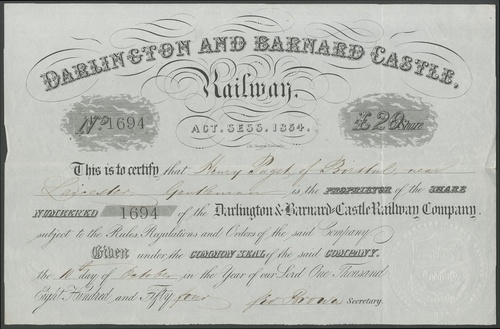 DARLINGTON AND BARNARD CASTLE,
Railway.
No. 1694
£20 Share
ACT. SESS. 1854.
This is to certify that Henry Paget of Birstal, near
Leicester Gentleman is the PROPRIETOR of the SHARE
NUMBERED 1694 of the Darlington & Barnard-Castle Railway Company.
subject to the Rules, Regulations and Orders of the said Company.
Given under the COMMON SEAL of the said COMPANY.
the 10th day of October in the Year of our Lord One Thousand
Eight Hundred and Fifty four Secretary.